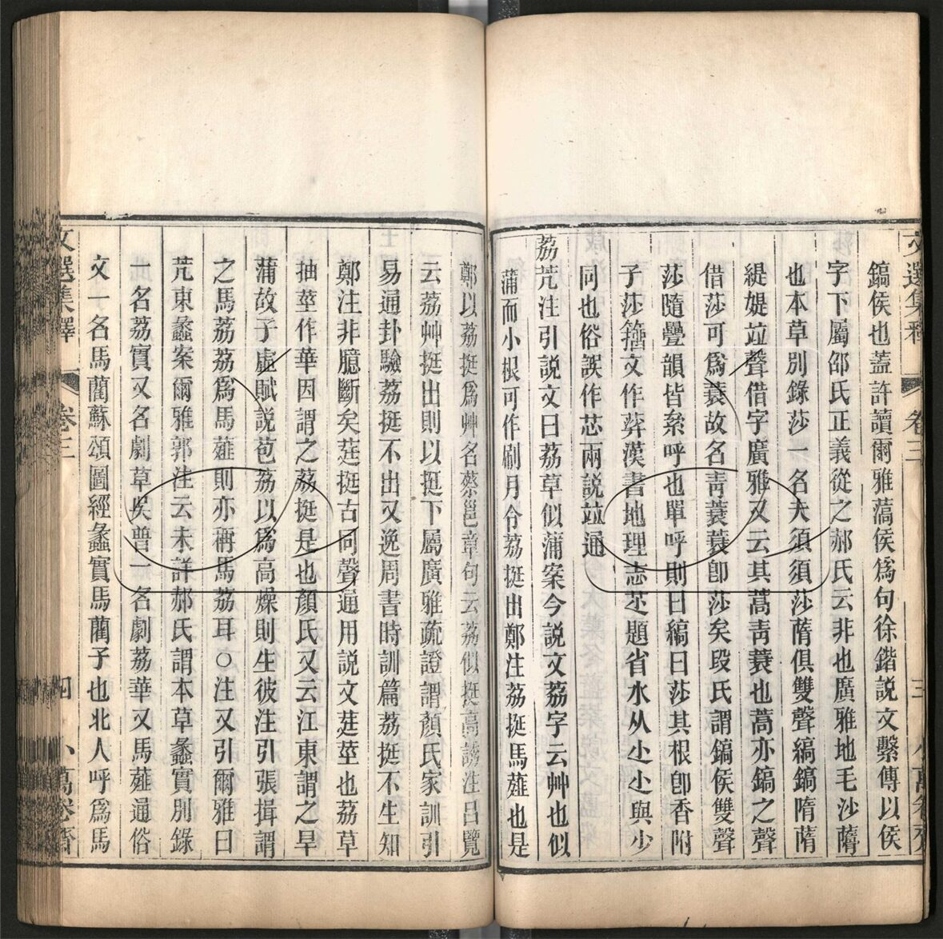 鎬侯也蓋許讀爾雅蒿侯爲句徐鍇說文繫傳以侯
字下屬邵氏正義從之郝氏云非也廣雅地毛沙蓨
也本草別錄莎一名夫須須莎蓨俱雙聲縞鎬隋蓨
緹媞竝聲借字廣雅又云其蒿青蓑也蒿亦鎬之聲
借莎可爲蓑故名青蓑蓑卽莎矣段氏謂鎬侯雙聲
莎隨疊韻皆絫呼也單呼則曰縞曰莎其根卽香附
子莎籀文作漢書地理志題省水从心心與少
同也俗誤作芯兩說竝通
荔芫注引說文曰荔草似蒲案今說文荔字云艸也似
蒲而小根可作刷月令荔挺出鄭注荔挺馬薤也是
鄭以荔挺爲艸名蔡邕章句云荔似挺高誘注呂覽
云荔艸挺出則以挺下屬廣雅疏證謂顏氏家訓引
易通卦驗荔挺不出又逸周書時訓篇荔挺不生知
鄭注非臆斷矣莛挺古同聲通用說文莛莖也荔草
抽莖作華因謂之荔挺是也顏氏又云江東謂之旱
蒲故子虛賦說苞荔以爲高燥則生彼注引張揖謂
之馬荔荔爲馬薤則亦稱馬荔耳○注又引爾雅曰
芫東蠡案爾雅郭注云未詳郝氏謂本草蠡實別錄
一名荔實又名劇草吳普一名劇荔華又馬薤通俗
文一名馬藺蘇頌圖經蠡實馬藺子也北人呼爲馬
文選集釋
卷三
三
小萬卷齋
文選集釋
卷三
四
小萬卷齋